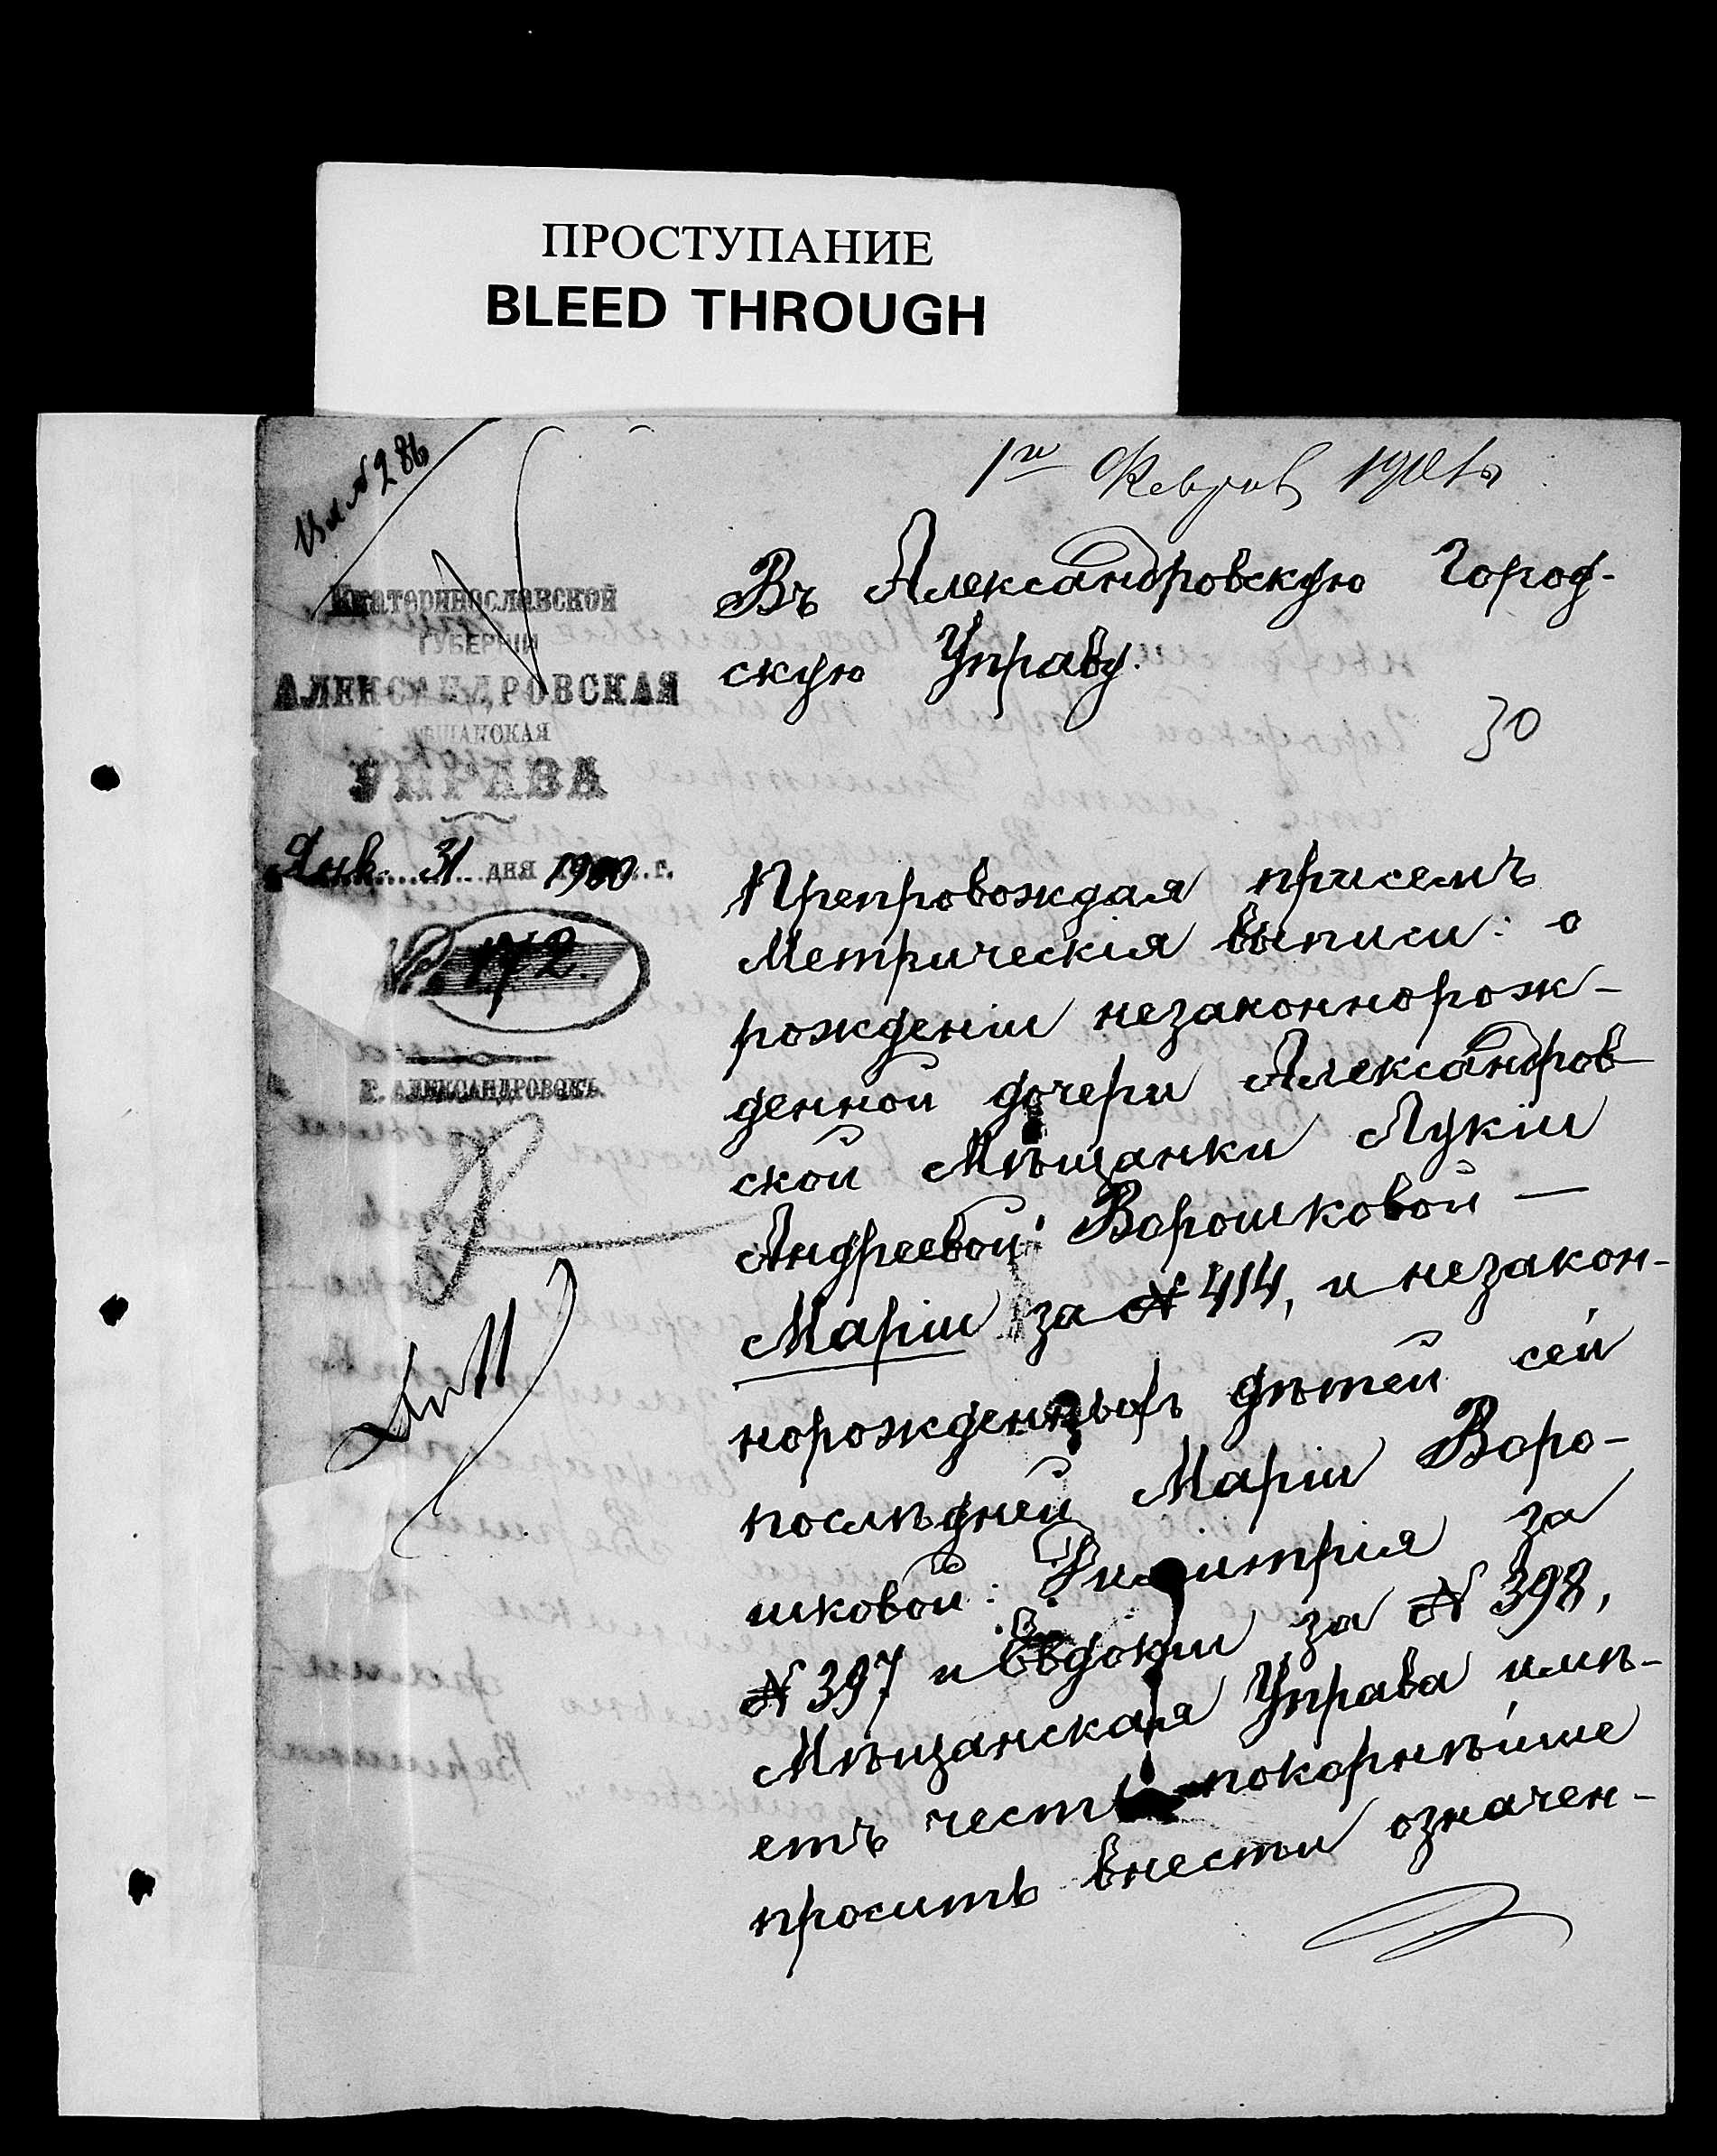 ПРОСТУПАНИЕ
BLEED THROUGH
Вх №286
1го Феврал 1901 г
Екатеринославской
ГУБЕРНИИ
АЛЕКСАНДРОВСКАЯ
МѢЩАНСКАЯ
УПРАВА
Янв. 31 дня 1900 г.
№ 172.
Г. АЛЕКСАНДРОВСКЪ.
Въ Александровскую Город-
скую Управу.
30
Препровождая присемъ
Метрическія выписи: о
рожденіи незаконнорож-
денной дочери Александров-
ской Мѣщанки Лукіи
Андреевой Ворошковой —
Маріи за № 414, и незакон-
норожденныхъ дѣтей сей
послѣдней Маріи Воро-
шковой: Димитрія за
№ 397 и Евдокіи за № 398,
Мѣщанская Управа имѣ-
етъ честь покорнѣйше
просить внести означен-